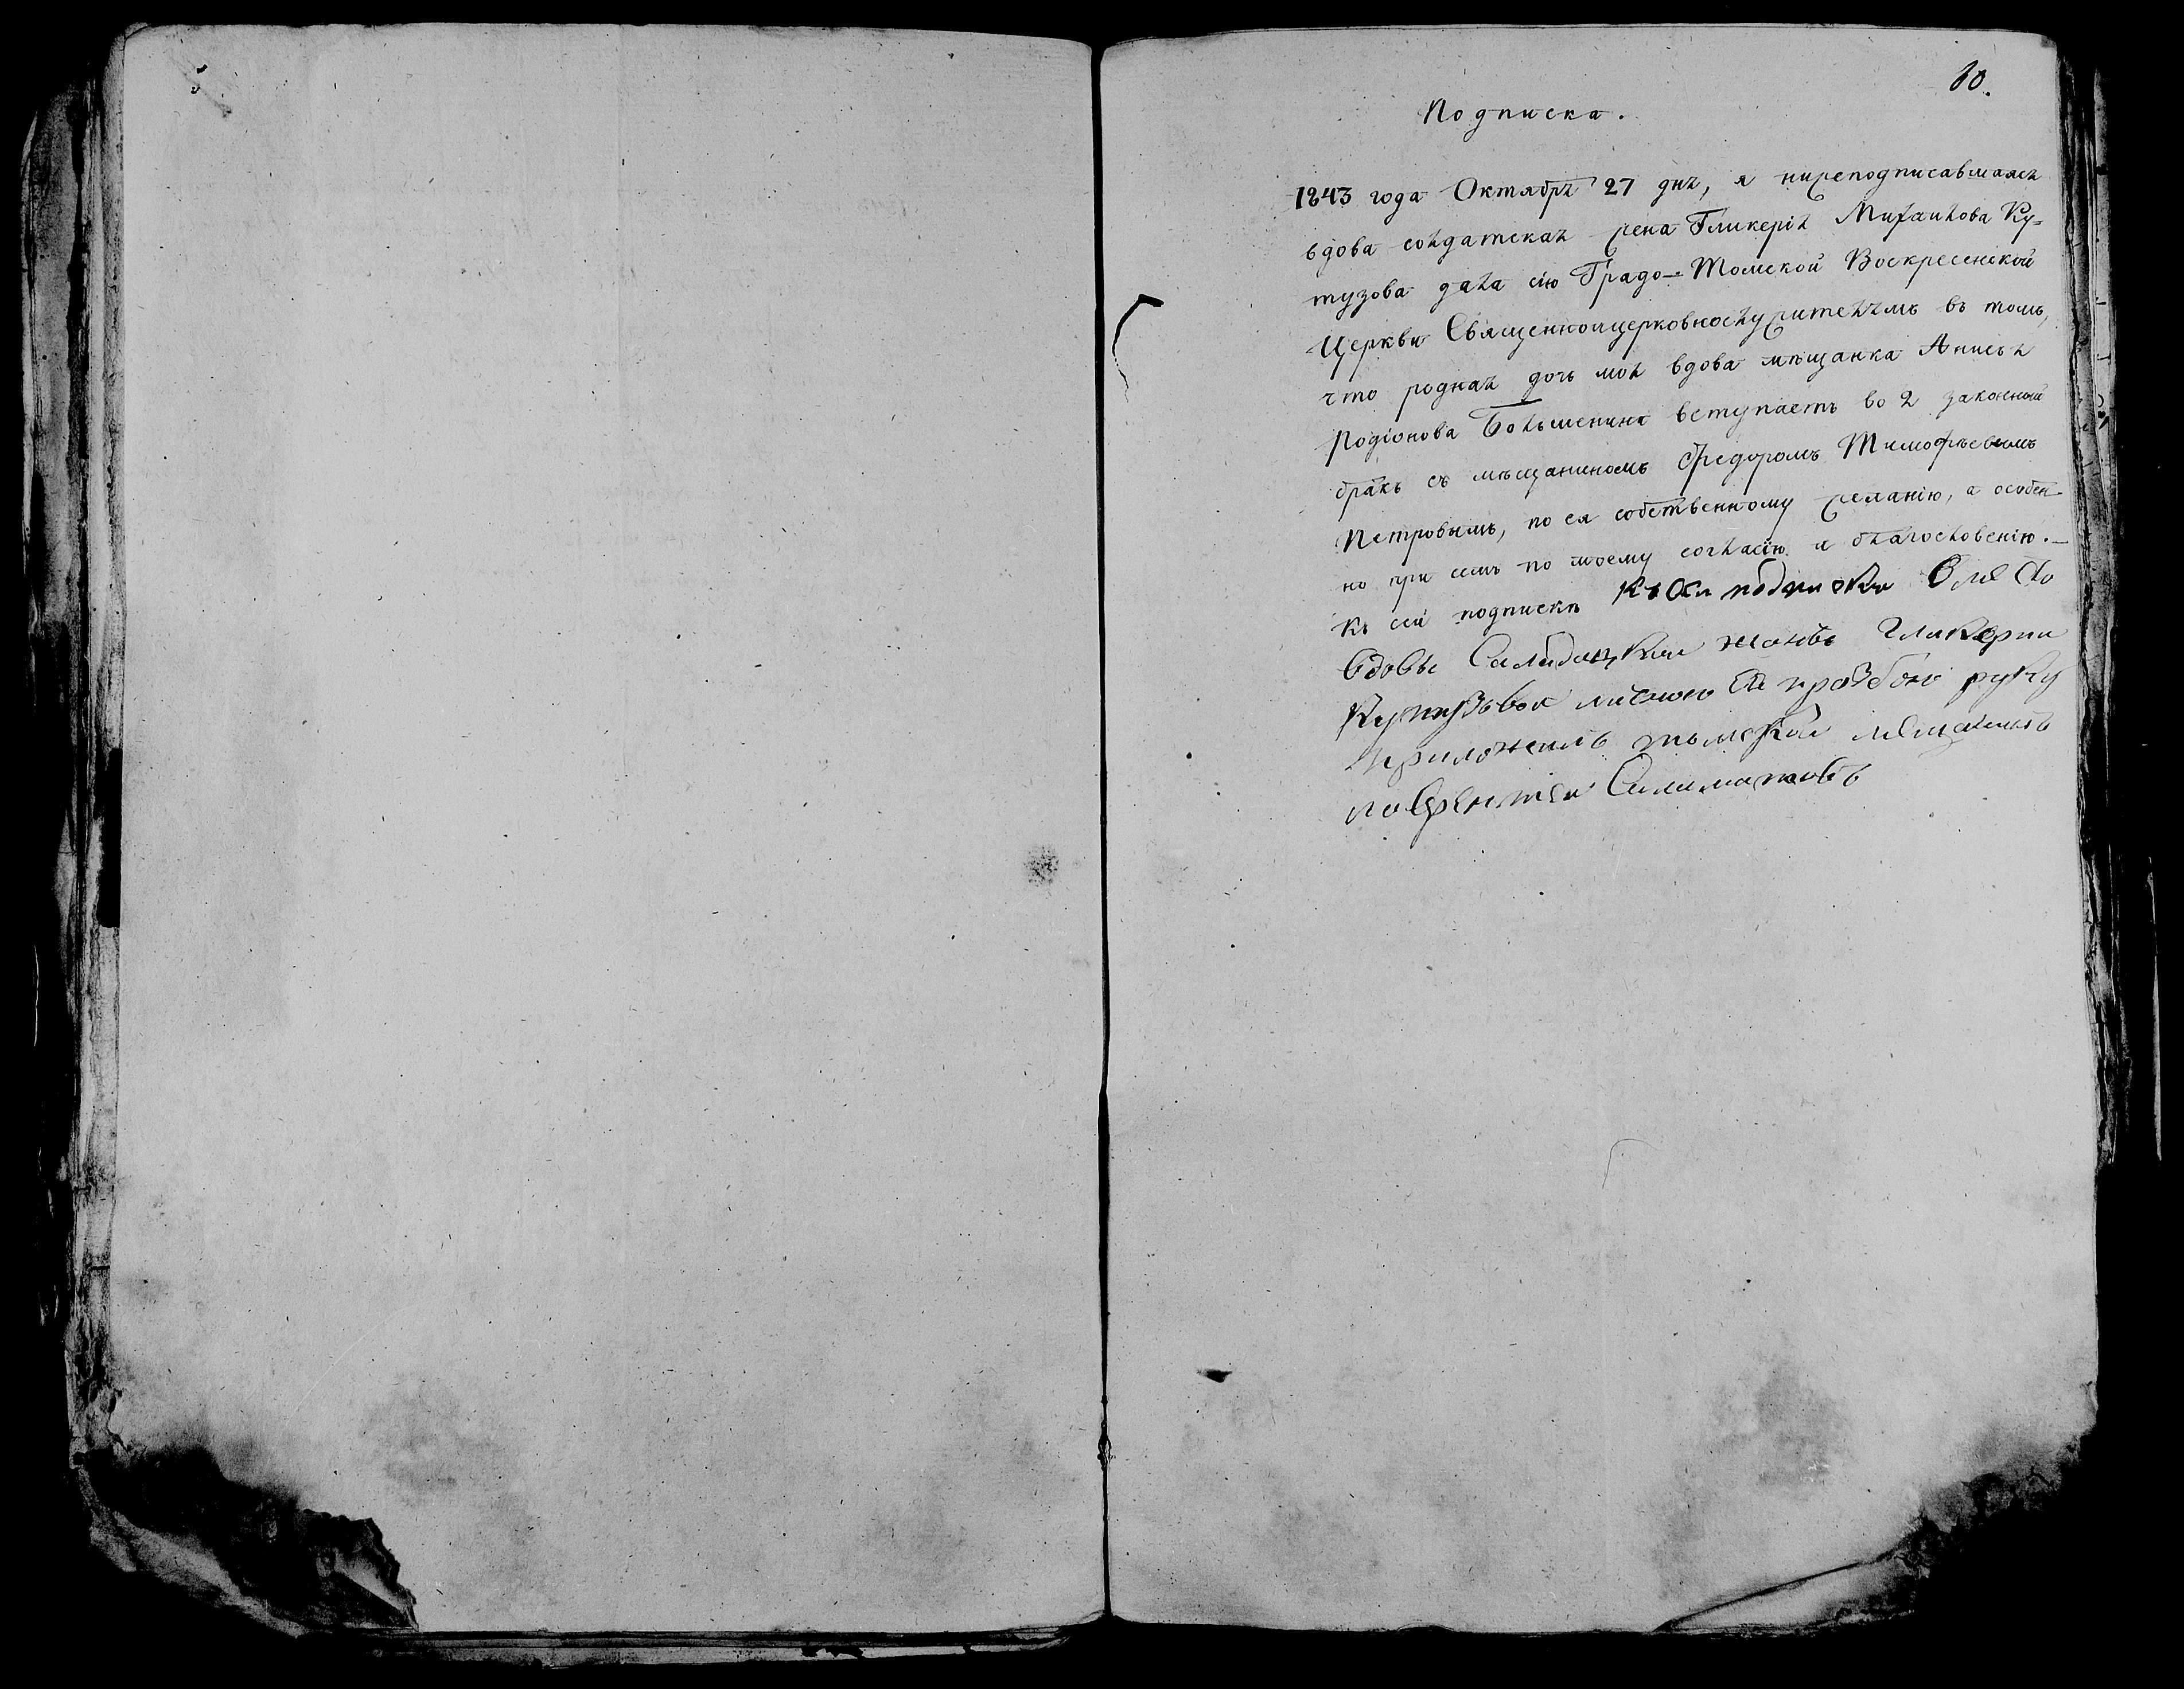 60.
Подписка.
1843 года Октября 27 дня, я нижеподписавшаяся
вдова солдатская жена Гликерія Михаилова Ку-
тузова дала сію Градо-Томской Воскресенской
Церкви Священноицерковнослужителямъ въ томъ,
что родная дочь моя вдова мѣщанка Анисья
Родіонова Большенина вступаетъ во 2 законный
бракъ съ мѣщаниномъ Федоромъ Тимофѣевымъ
Петровымъ, по ея собственному желанію, а особен-
но при семъ по моему согласію и благословенію.-
Къ сей подпискѣ Къ Сеи подписки
вдовы Салдацкои жоны Гликерии
Кутузовои личною Ея прозбою руку
приложилъ томскои мещанинъ
лаврентеи